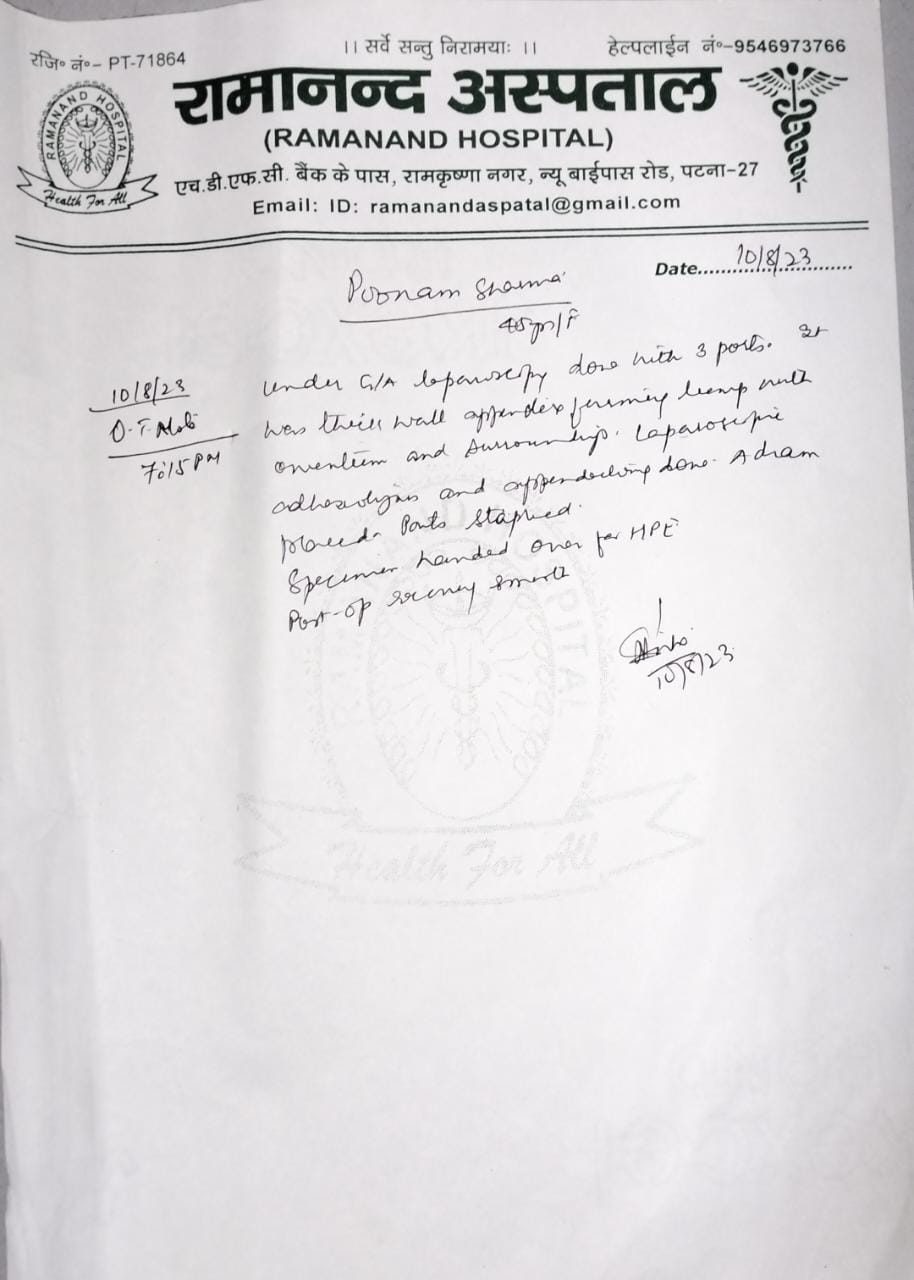 रजि० नं०– PT-71864
।। सर्वे सन्तु निरामयाः ।।
हेल्पलाईन नं०–9546973766
RAMANAND HOSPITAL
Health For All
रामानन्द अस्पताल
(RAMANAND HOSPITAL)
एच.डी.एफ.सी. बैंक के पास, रामकृष्णा नगर, न्यू बाईपास रोड, पटना–27
Email: ID: ramanandaspatal@gmail.com
Date......10/8/23......
Poonam Sharma
yrs/F
10/8/23
O.T. Note
7:15 PM
Under G/A laparoscopy done with 3 ports. It
was thick wall appendix forming lump with
omentum and surroundings. Laparoscopic
adhesolysis and done. A drain
placed. Ports stapled.
Specimen handed over for HPE
Post-op smooth
10/8/23
Health For All